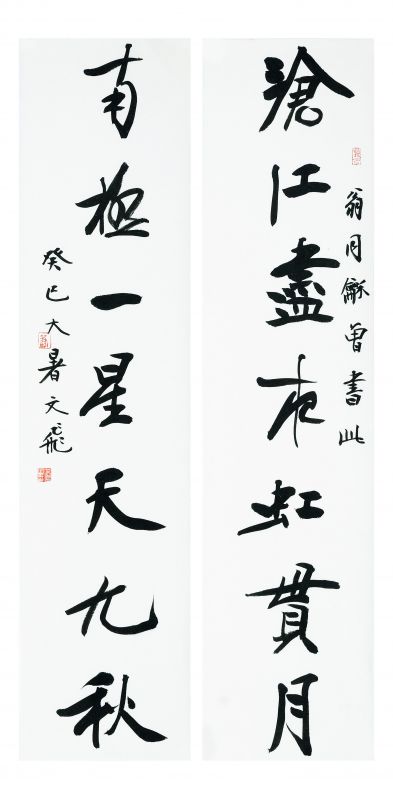 滄江盡夜虹貫月
翁同龢曾書此
南極一星天九秋
癸巳大暑文飛